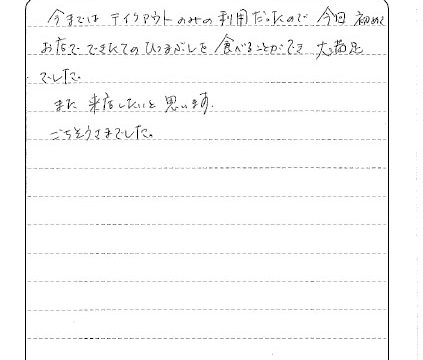 今まではテイクアウトのみの利用だったので今回初めて
お店でできたてのひつまぶしを食べることができ大満足
でした。
また来店したいと思います。
ごちそうさまでした。